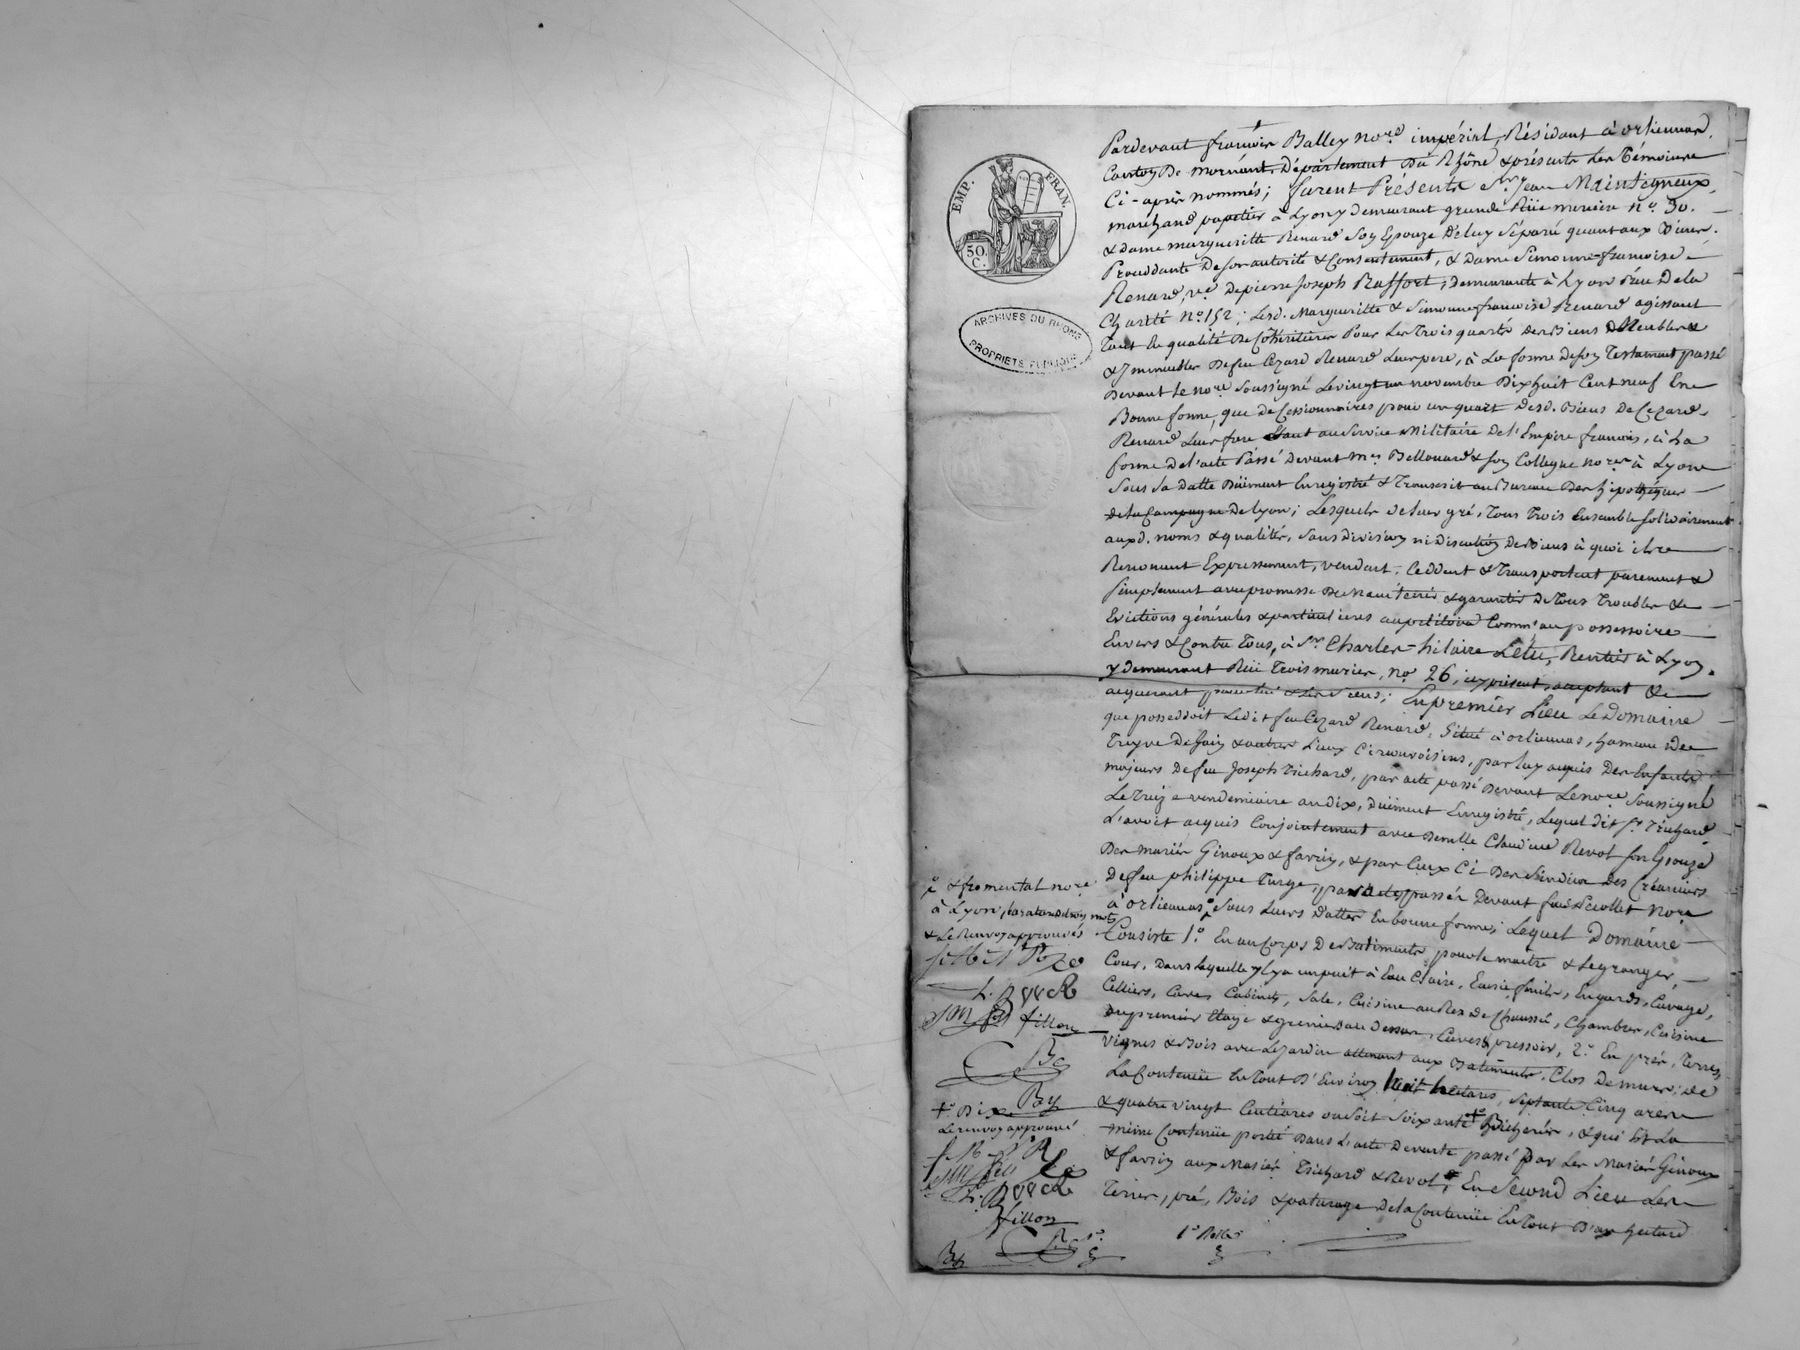 EMP. FRAN.
50 C.
ARCHIVES DU RHONE
PROPRIETE PUBLIQUE
Pardevant françois Balley no.re impérial, Résidant à orliennas,
Canton De mornant, Département Du Rhône & présents Les Témoins
Ci-après nommés; furent Présents Sr. Jean Mainseigneux,
marchand papetier à Lyon y demeurant grande Rüe merciere no. 30.
& dame margueritte Renard Son Epouze De luy Séparée quant aux Biens,
Proceddante De son autorité & Consentement, & dame Simonne françoise
Renard, ve. de pierre Joseph Raffort, demeurante à Lyon Rüe De la
Charité No. 152; Lesd. Margueritte & Simonne françoise Renard agissant
Tant En qualité De Cohéritieres Pour Les Trois quarts des Biens Meubles
& Immeubles De feu Cezard Renard Leur pere, à La forme de son Testament passé
Devant le no.re Soussigné Le vingt un novembre Dix huit Cent neuf En
Bonne forme, que de Cessionnaires pour un quart Desd. Biens De Cezard
Renard Leur frere Etant au Service Militaire De l'Empire françois, à La
forme De l'acte Passé Devant me. Bellouard & son Collegue no.res à Lyon
Sous Sa Datte Düement Enregistré & Transcrit au Bureau Des hipothéques
de la Campagne De Lyon; Lesquels de leur gré, Tous Trois Ensemble solidairement
auxd. noms & qualités, Sans division ni Discution De Biens à quoi ils
Renoncent Expressement, vendent, Ceddent & Transportent purement &
Simplement avec promesse De Maintenir & garantir De Tous Troubles &
Evictions générales & particulieres au petitoire Comm' au possessoire
Envers & Contre Tous, à Sr. Charles-hilaire Létu, Rentier à Lyon,
y demeurant Rüe Trois maries, no. 26, icy présent, acceptant &
acquerant pour lui & Les Siens; En premier Lieu Le Domaine
que posseddoit Ledit feu Cezard Renard, Situé à orliennas, hameau de
Treyve De fain & autres Lieux Circonvoisins, par luy acquis Des Enfants
majeurs De feu Joseph Trichard, par acte passé Devant Le no.re Soussigné
Le Treize vendemiaire an dix, Düement Enregistré, Lequel dit Sr. Trichard
L'avoit acquis Conjointement avec Demlle Claudine Revol son Epouze
Des mariés Ginoux & favrin, & par Ceux Ci Des Sindics Des Créanciers
De feu philippe Turge, par actes passés Devant feu Me. Decollet no.re
à orliennas, Sous Leurs Dattes En bonne forme; Lequel Domaine
Consiste 1.o En un Corps De Batiments pour le maitre & Le granger,
Cour, Dans laquelle y Ly a un puit à Eau Claire, Ecurie, fenils, Engards, Cuvage,
Celliers, Caves, Cabinets, Sale, Cuisine au Rez De Chaussée, Chambres, Cuisine
au premier Etage & greniers au Dessus, Cuves, pressoir, 2.o En prés, Terres,
vignes & Bois avec Le jardin attenant aux Batiments, Clos De murs; de
La Contenüe En Tout D'Environ Huit hectares, Septante Cinq ares
& quatre vingt Centiares ou Soit Soixante + Bicherées, & qui Est La
même Contenüe portée Dans L'acte De vente passé par Les Mariés Ginoux
& favrin aux Mariés Trichard & Revol; En Second Lieu Les
Terres, pré, Bois & paturage De la Contenüe En Tout D'un hectare
& fromental no.re
à Lyon,
& Le Renvoy approuvés
fillon
+ Dix
Le renvoy approuvé
fillon
1.er Rolle